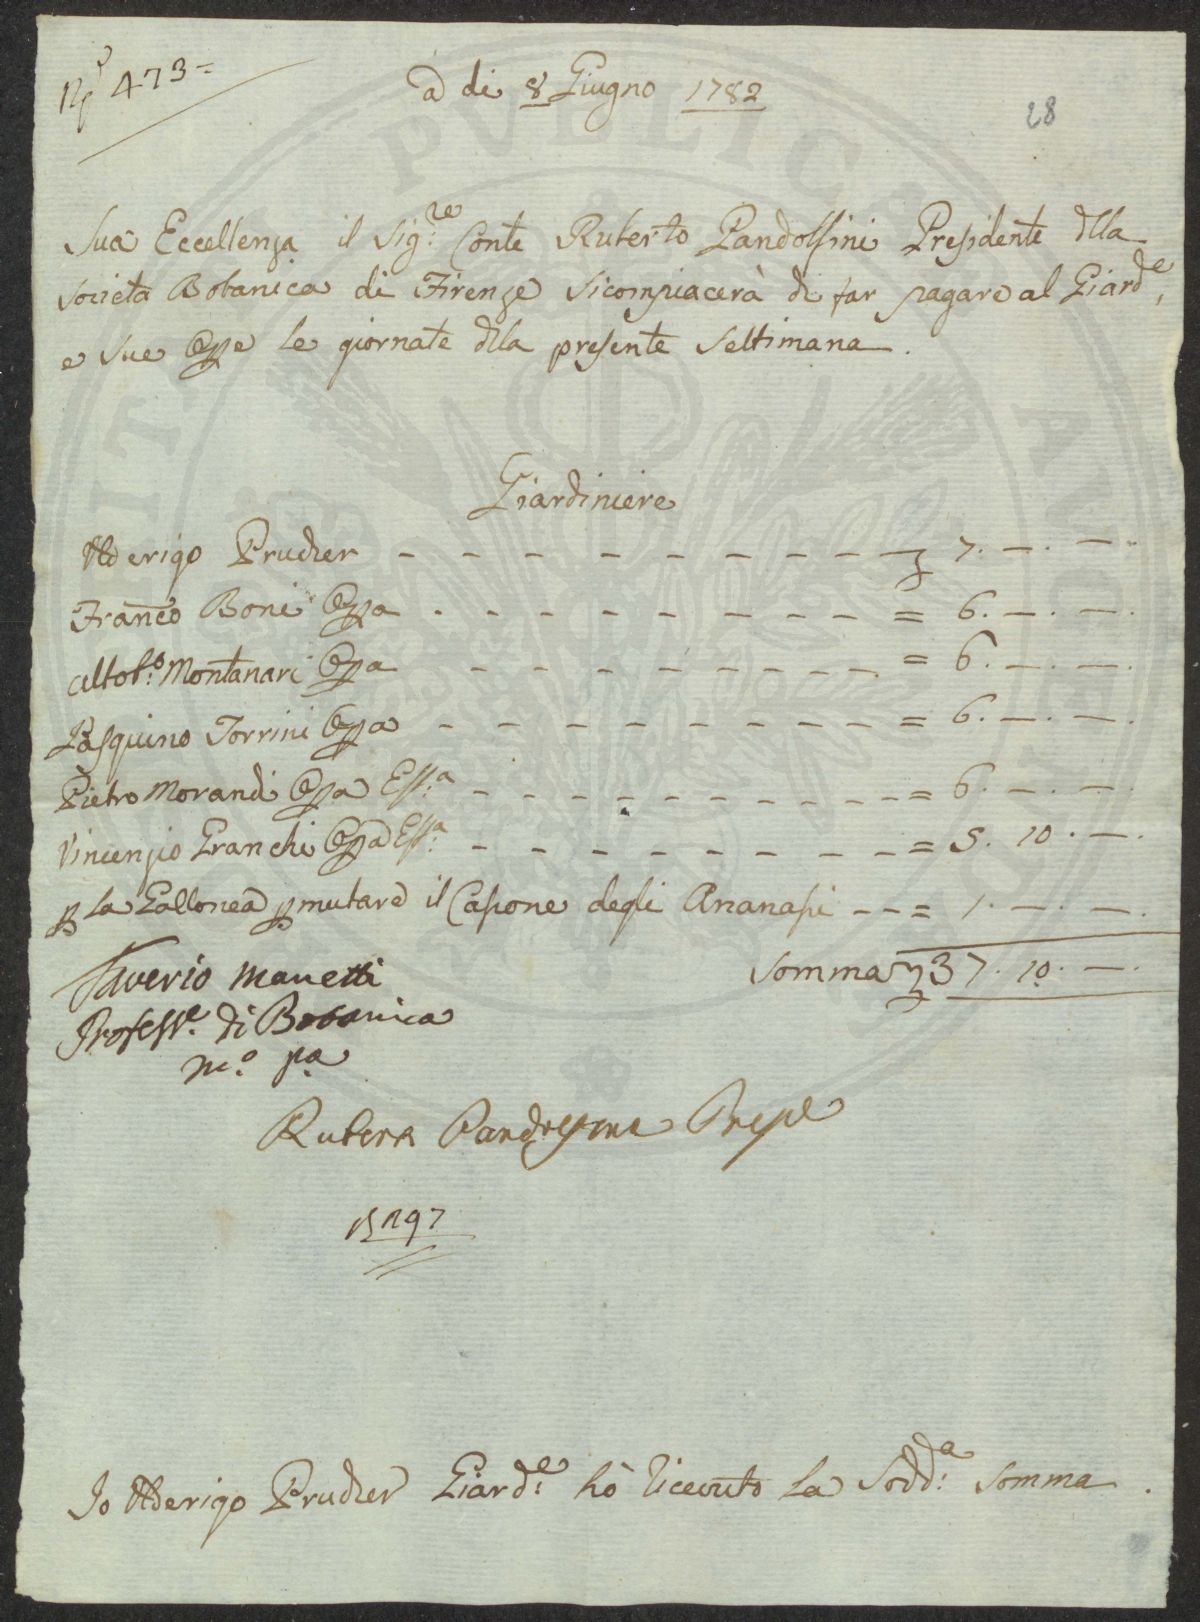 N.º 473=
a di 8 Giugno 1782
28
Sua Eccellenza il Sig.re Conte Ruberto Pandolfini Presidente dlla
Società Botanica di Firenze si compiacerà di far pagare al Giard.e,
e sue Opp.e le giornate dlla presente Settimana.
Giardiniere
Prucher - - - - - - - - - - 7. —. —.
Franco Boni Oppa - - - - - - - - - = 6. —. —.
Montanari Oppa - - - - - - - - = 6. —. —.
Pasquino Torrini Oppa - - - - - - - - - = 6. —. —.
Pietro Morandi Oppa Ess.a - - - - - - - - - - = 6. —. —.
Vincenzio Franchi Oppa Ess.a - - - - - - - - - = 5. 10. —.
p la Vallonea p mutare il Casone degli Ananasi - - = 1. —. —.
Somma 37. 10. —.
Saverio Manetti
Profess.e di Botanica
m.o p.a
Pandolfini
Io Prucher Giard.e hò ricevuto la Sodd.a Somma.